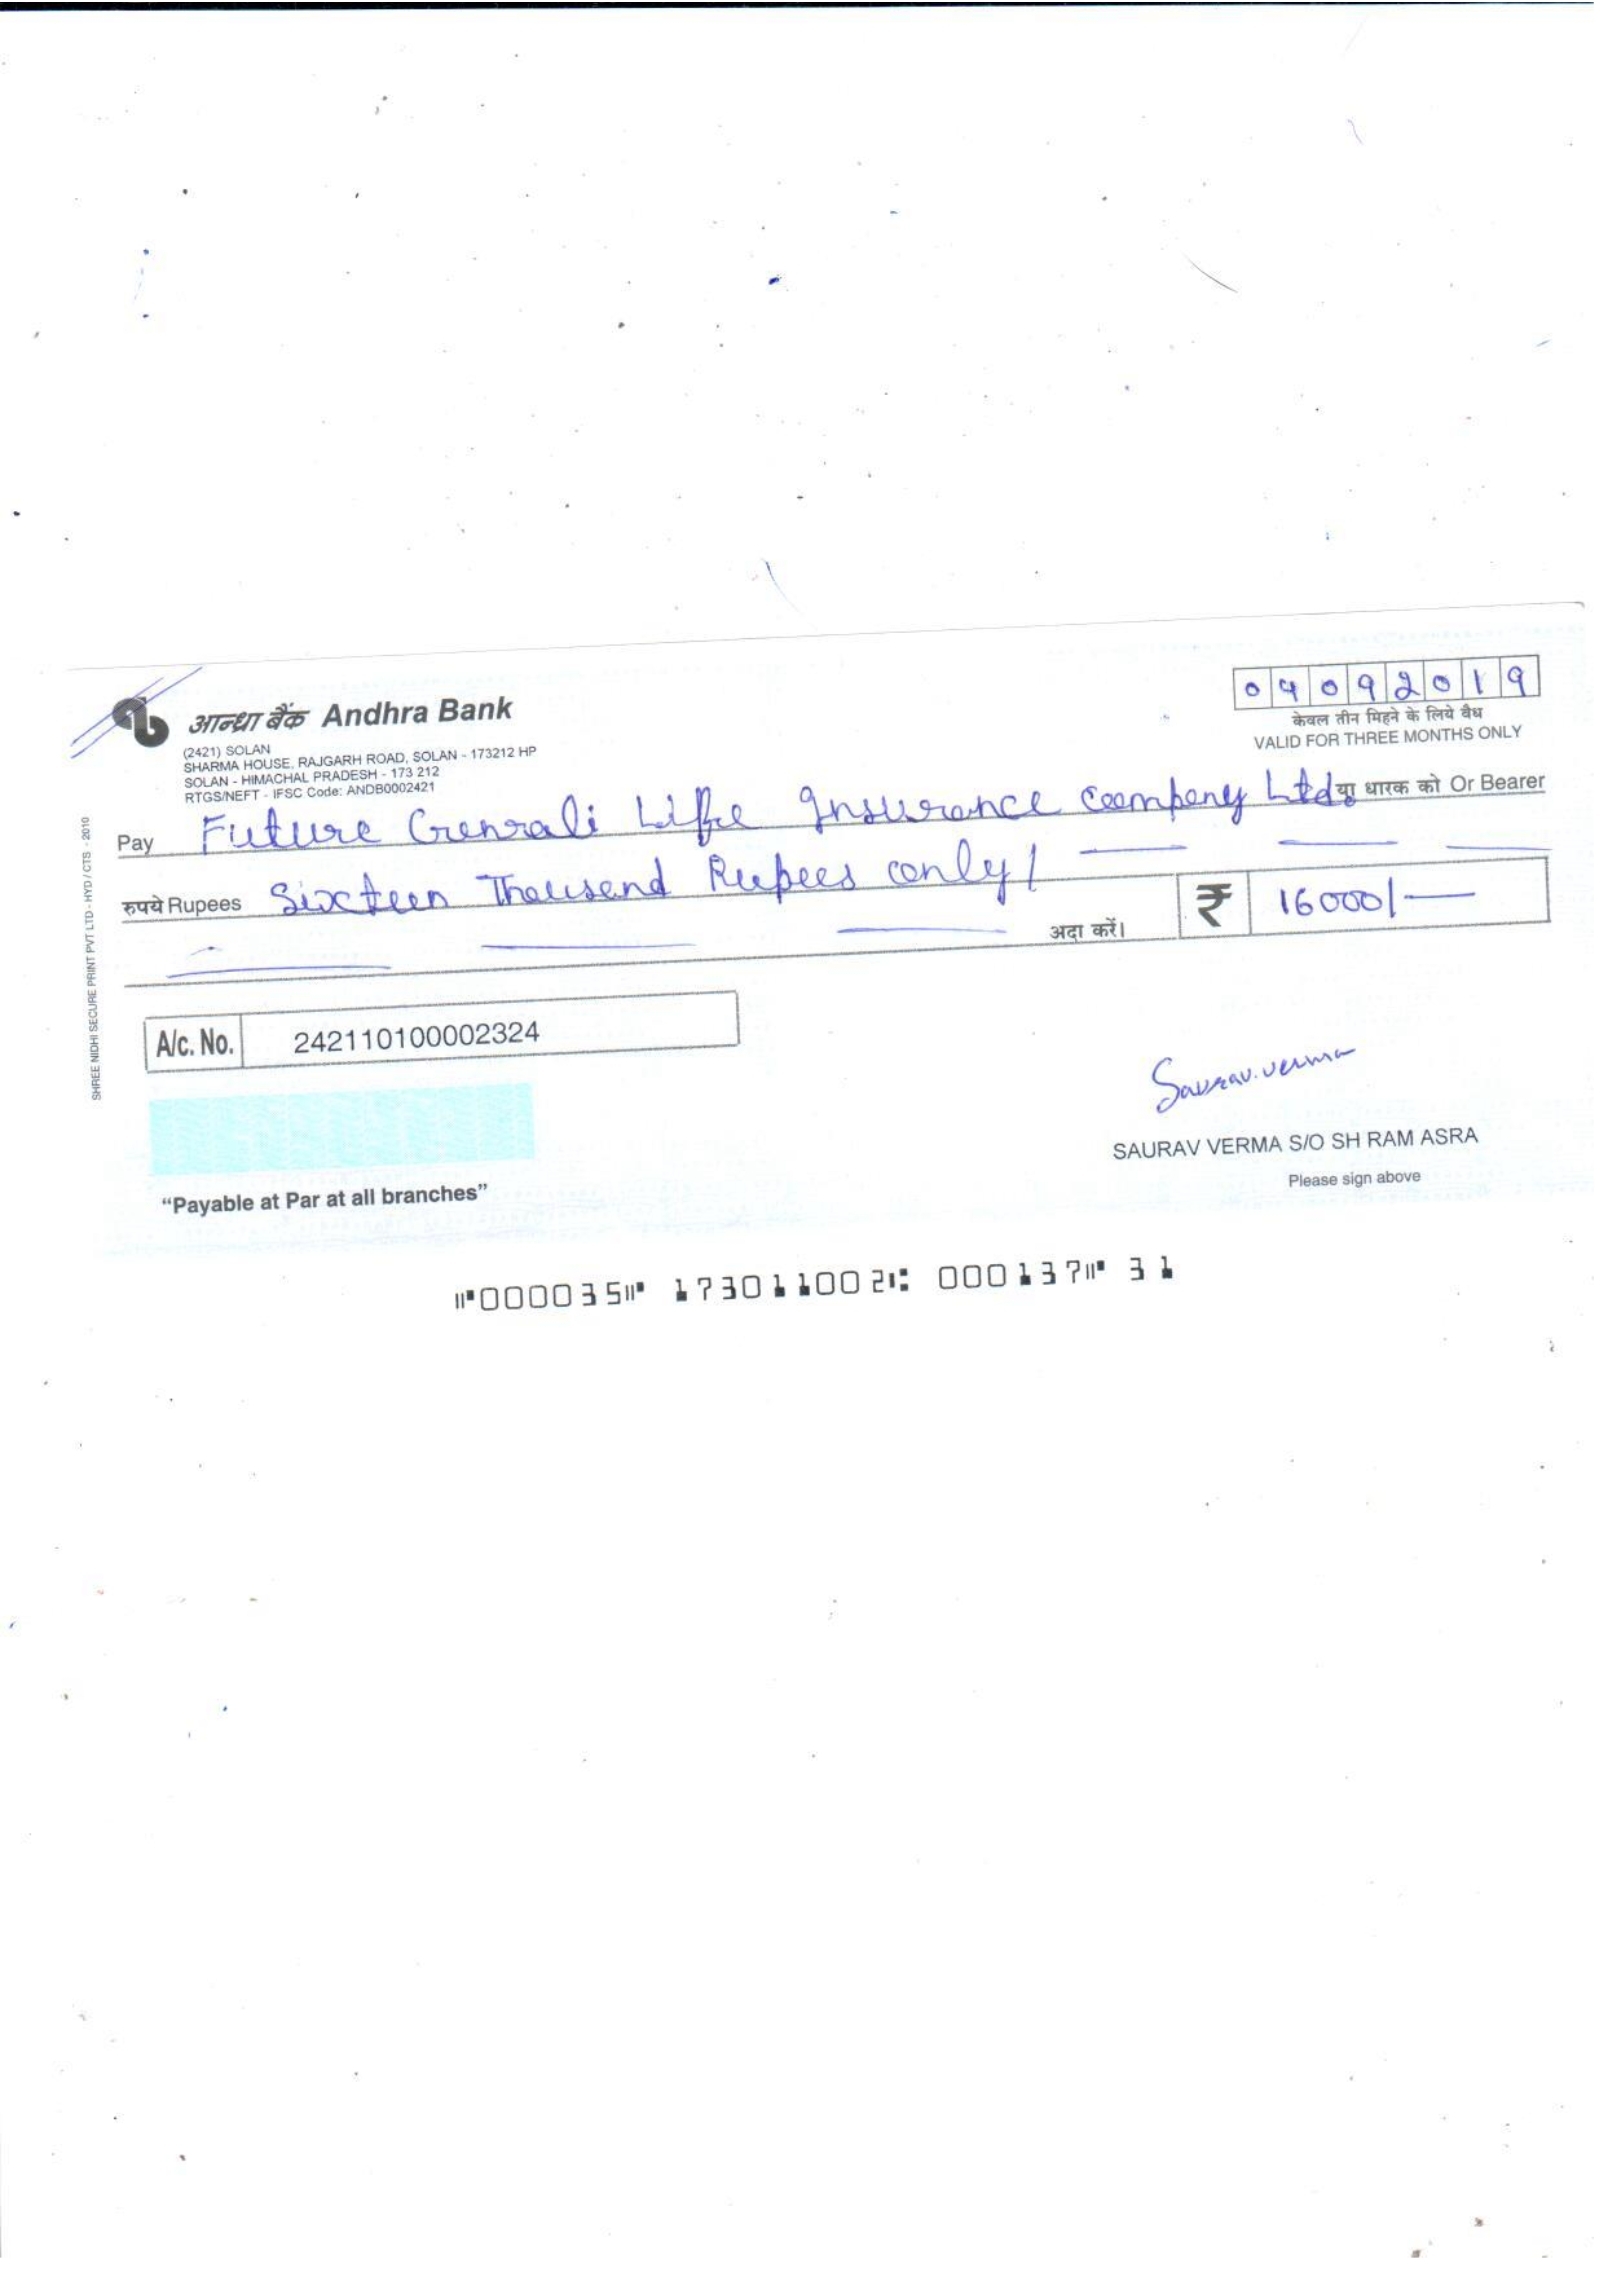 आन्ध्रा बैंक Andhra Bank
(2421) SOLAN
SHARMA HOUSE, RAJGARH ROAD, SOLAN - 173212 HP
SOLAN - HIMACHAL PRADESH - 173 212
RTGS/NEFT - IFSC Code: ANDB0002421
04092019
केवल तीन मिहने के लिये वैध
VALID FOR THREE MONTHS ONLY
Pay Future Genrali Life Insurance Company Ltd. या धारक को Or Bearer
रुपये Rupees Sixteen Thousand Rupees only/
अदा करें। ₹ 16000/-
A/c. No. 242110100002324
Saurav.verma
SAURAV VERMA S/O SH RAM ASRA
Please sign above
"Payable at Par at all branches"
SHREE NIDHI SECURE PRINT PVT LTD - HYD / CTS - 2010
⑈000035⑈ 173011002⑆ 000137⑈ 31